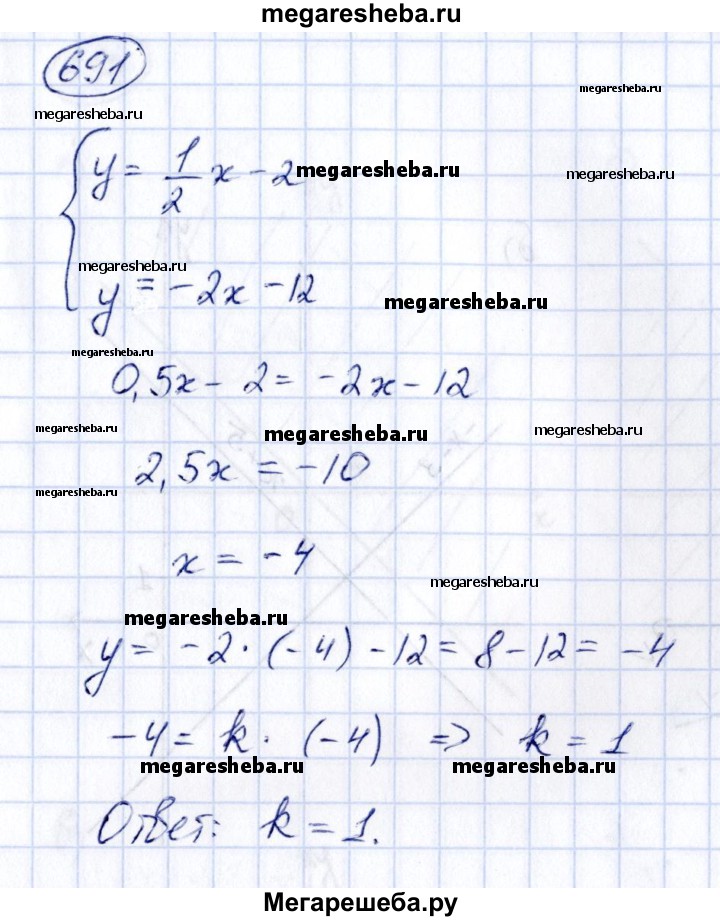 megaresheba.ru
691
megaresheba.ru megaresheba.ru
y = 1/2 x - 2 megaresheba.ru megaresheba.ru
megaresheba.ru
y = -2x - 12 megaresheba.ru
megaresheba.ru
0,5x - 2 = -2x - 12
megaresheba.ru megaresheba.ru megaresheba.ru
2,5x = -10
megaresheba.ru
x = -4
megaresheba.ru
megaresheba.ru
y = -2 · (-4) - 12 = 8 - 12 = -4
-4 = k · (-4) => k = 1
megaresheba.ru megaresheba.ru
Ответ: k = 1.
Мегарешеба.ру